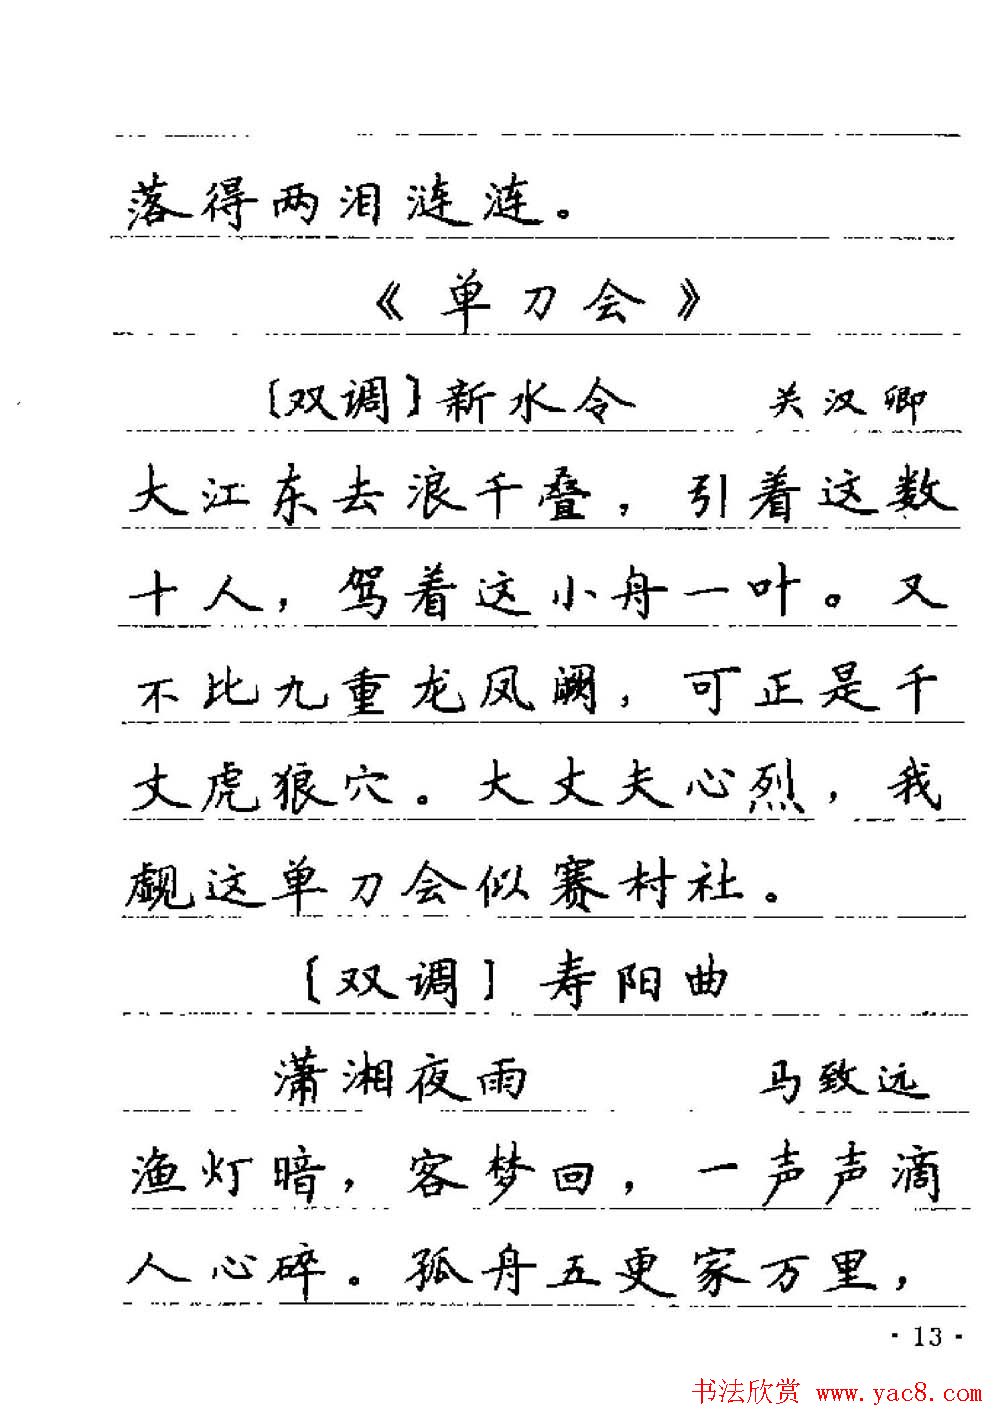 落得两泪涟涟。
《单刀会》
[双调]新水令 关汉卿
大江东去浪千叠，引着这数
十人，驾着这小舟一叶。又
不比九重龙凤阙，可正是千
丈虎狼穴。大丈夫心烈，我
觑这单刀会似赛村社。
[双调] 寿阳曲
潇湘夜雨 马致远
渔灯暗，客梦回，一声声滴
人心碎。孤舟五更家万里，
·13·
书法欣赏 www.yac8.com